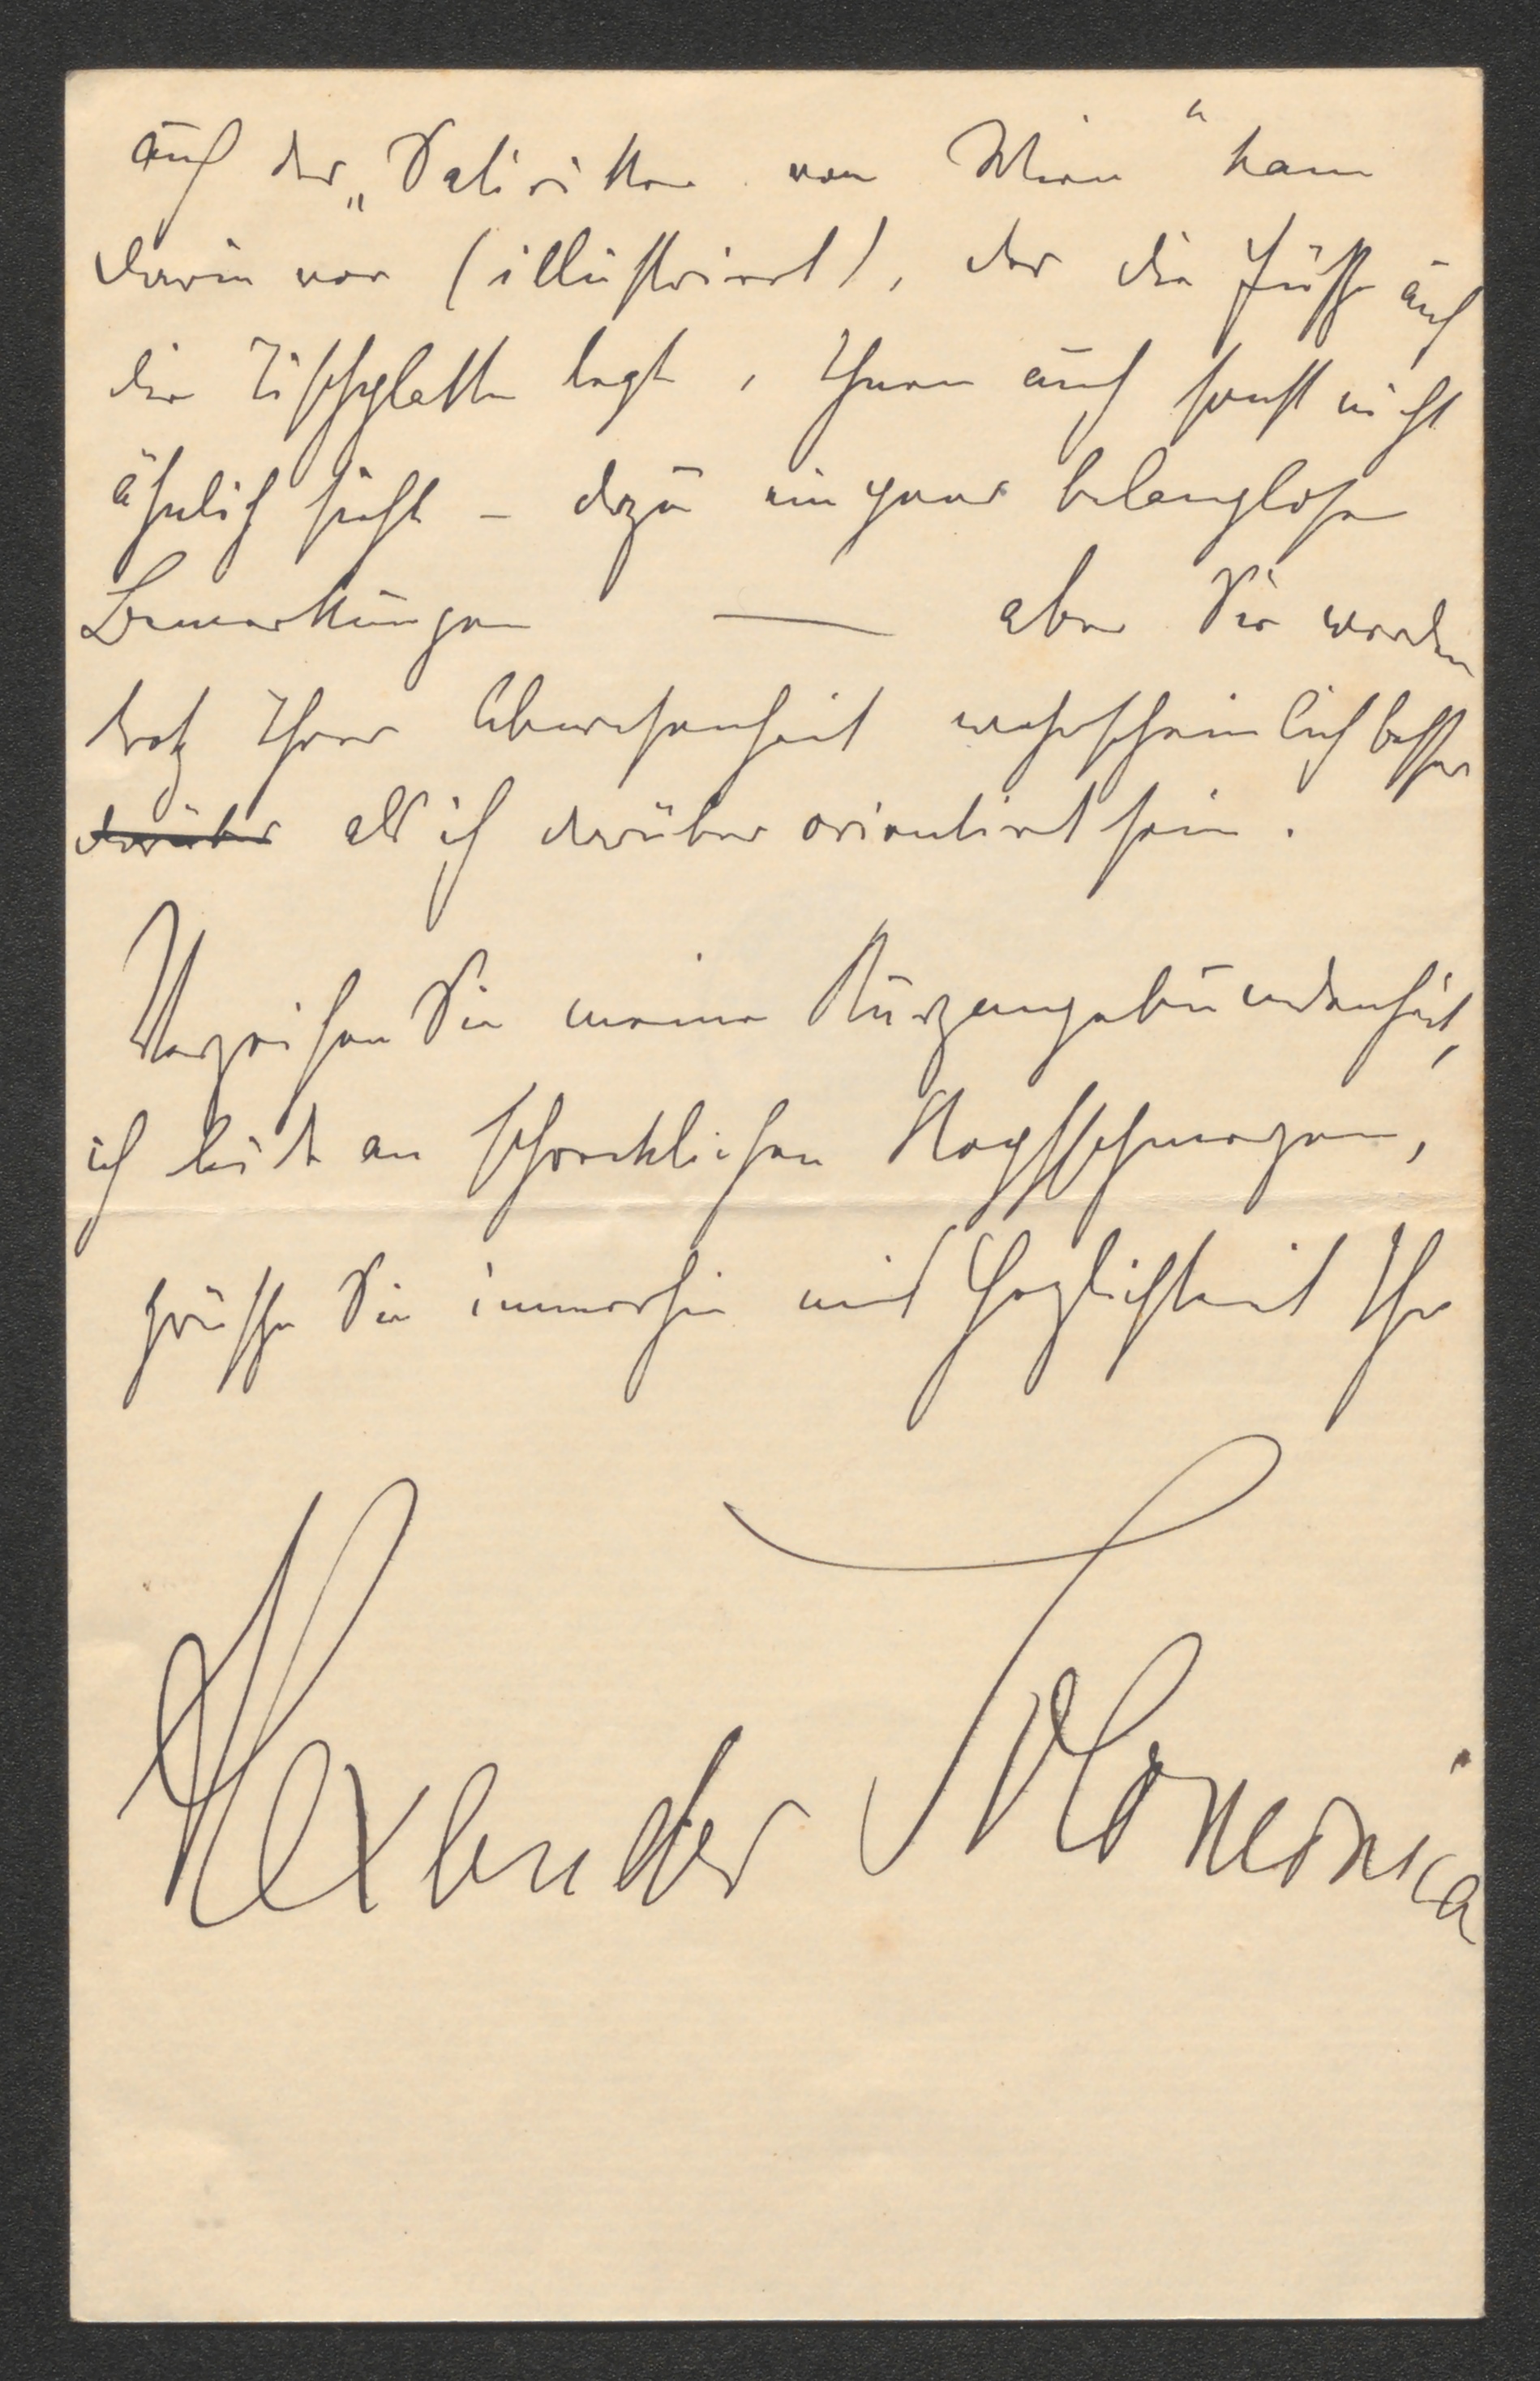 auch der „Satiriker von Wien" kam
darin vor (illustriert), der die Füsse auf
die Tischplatte legt, Ihnen auch sonst nicht
ähnlich sieht – dazu ein paar belanglose
Bemerkungen — aber Sie werden
trotz Ihrer Abwesenheit wahrscheinlich besser
darüber als ich darüber orientiert sein.
Verzeihen Sie meine Kurzangebundenheit,
ich leide an schrecklichen Kopfschmerzen,
grüsse Sie immerhin mit Herzlichkeit Ihr
Alexander Solomonica